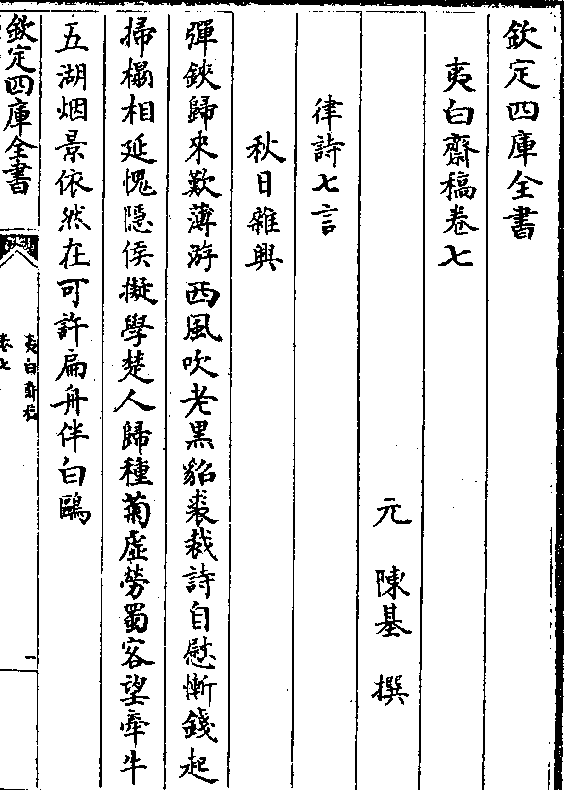 欽定四庫全書
夷白齋稿卷七
元 陳基 撰
律詩七言
秋日雜興
彈鋏歸來歎薄游西風吹老黒貂裘裁詩自慰慚錢起
掃榻相延愧隱侯擬學楚人歸種菊虛勞蜀客望牽牛
五湖烟景依然在可許扁舟伴白鷗
欽定四庫全書
夷白齋稿
卷七
一